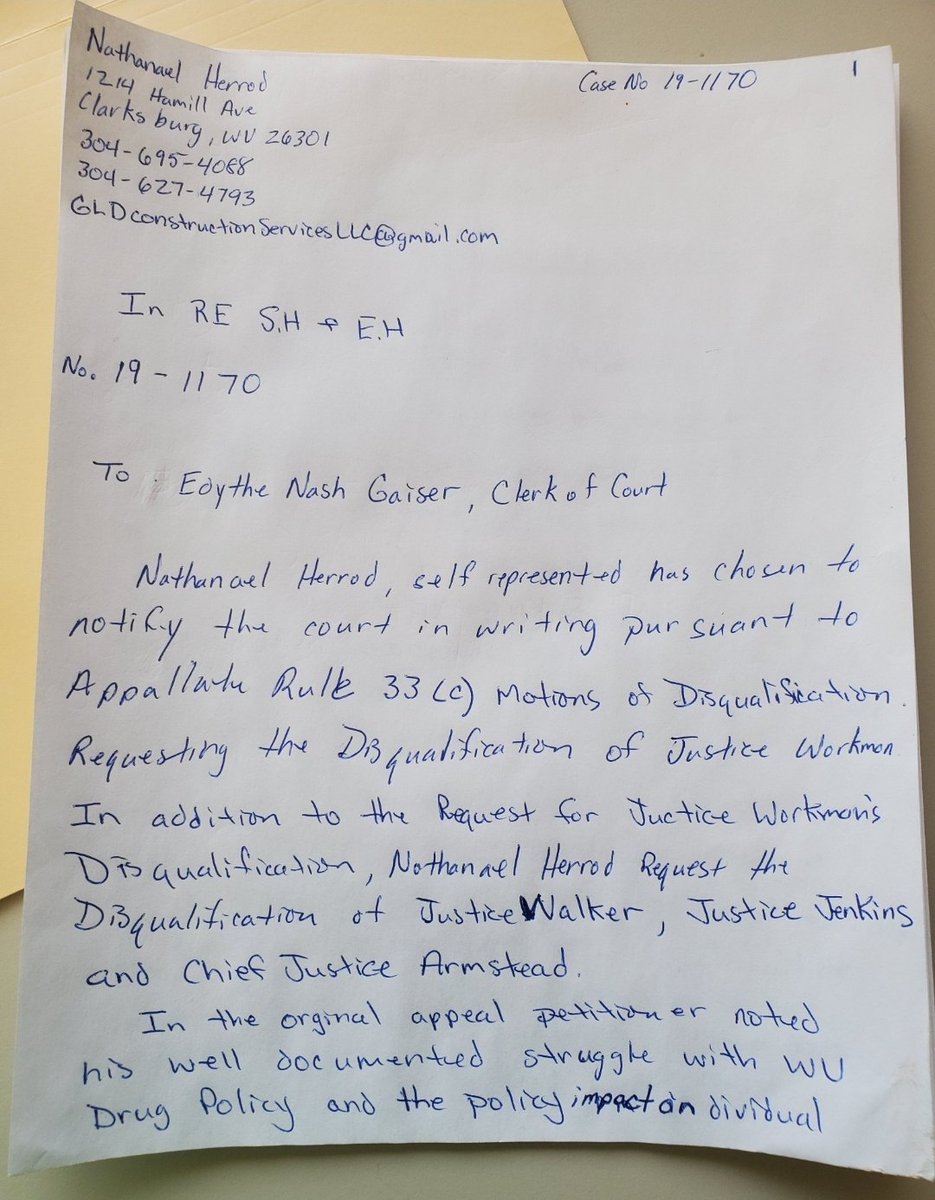 Nathanael Herrod
1214 Hamill Ave
Clarksburg, WV 26301
304-695-4088
304-627-4793
GLDconstructionServicesLLC@gmail.com
Case No 19-1170
1
In RE S.H & E.H
No. 19-1170
To Edythe Nash Gaiser, Clerk of Court
Nathanael Herrod, self represented has chosen to
notify the court in writing pursuant to
Appallate Rule 33(c) Motions of Disqualification.
Requesting the Disqualification of Justice Workman
In addition to the Request for Juctice Workman's
Disqualification, Nathanael Herrod Request the
Disqualification of Justice Walker, Justice Jenkins
and Chief Justice Armstead.
In the orginal appeal petitioner noted
his well documented struggle with WV
Drug Policy and the policy impact on dividual